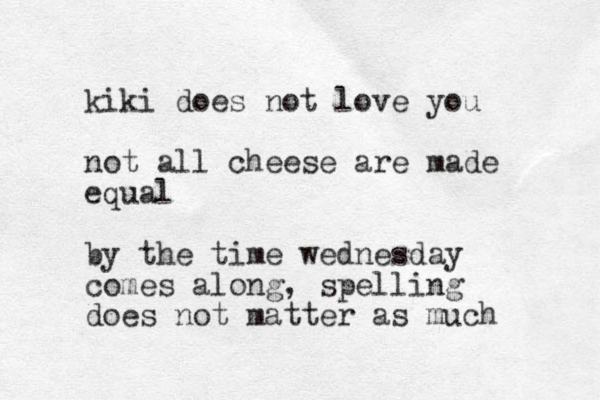 kiki does not love you
not all cheese are made
equal
by the time wednesday
comes along, spelling
does not matter as much